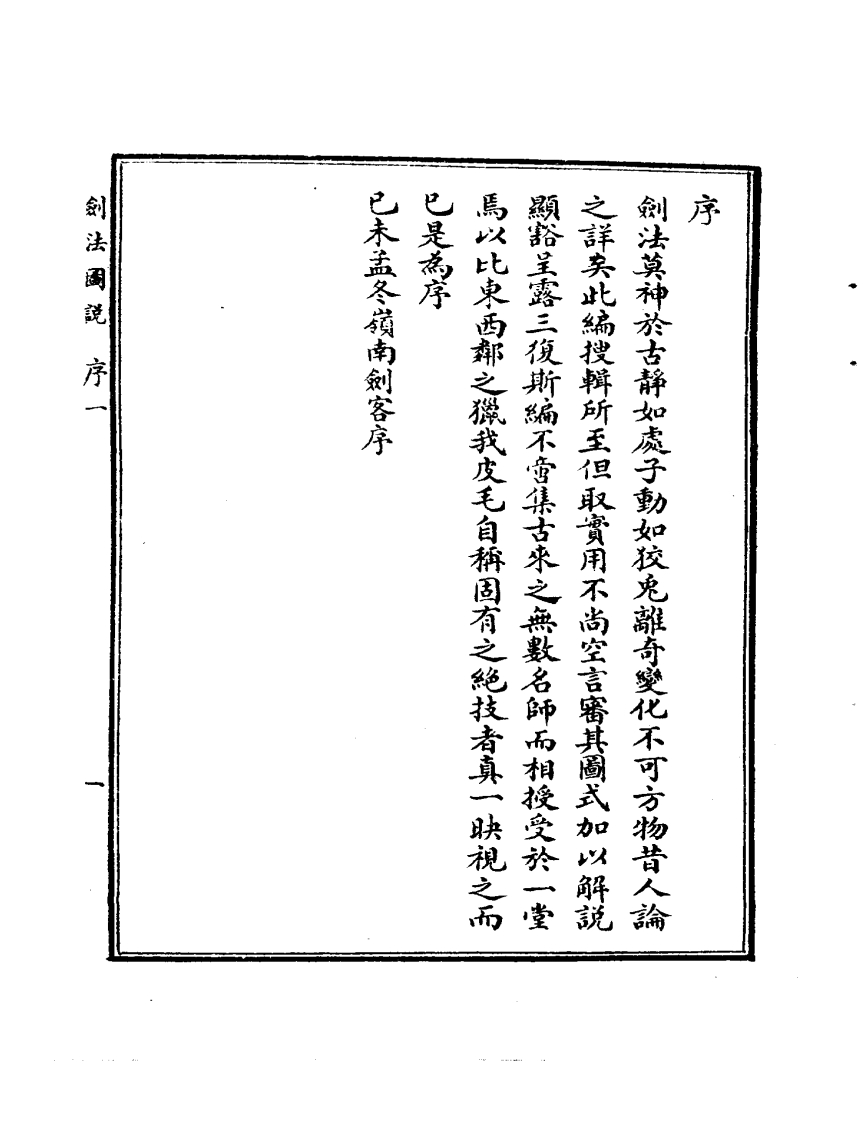 序
劍法莫神於古靜如處子動如狡兎離奇變化不可方物昔人論
之詳矣此編搜輯所至但取實用不尚空言審其圖式加以解説
顯豁呈露三復斯編不啻集古來之無數名師而相授受於一堂
焉以比東西鄰之獵我皮毛自稱固有之絶技者真一眣視之而
已是為序
已未孟冬嶺南劍客序
劍法圖説 序一 一